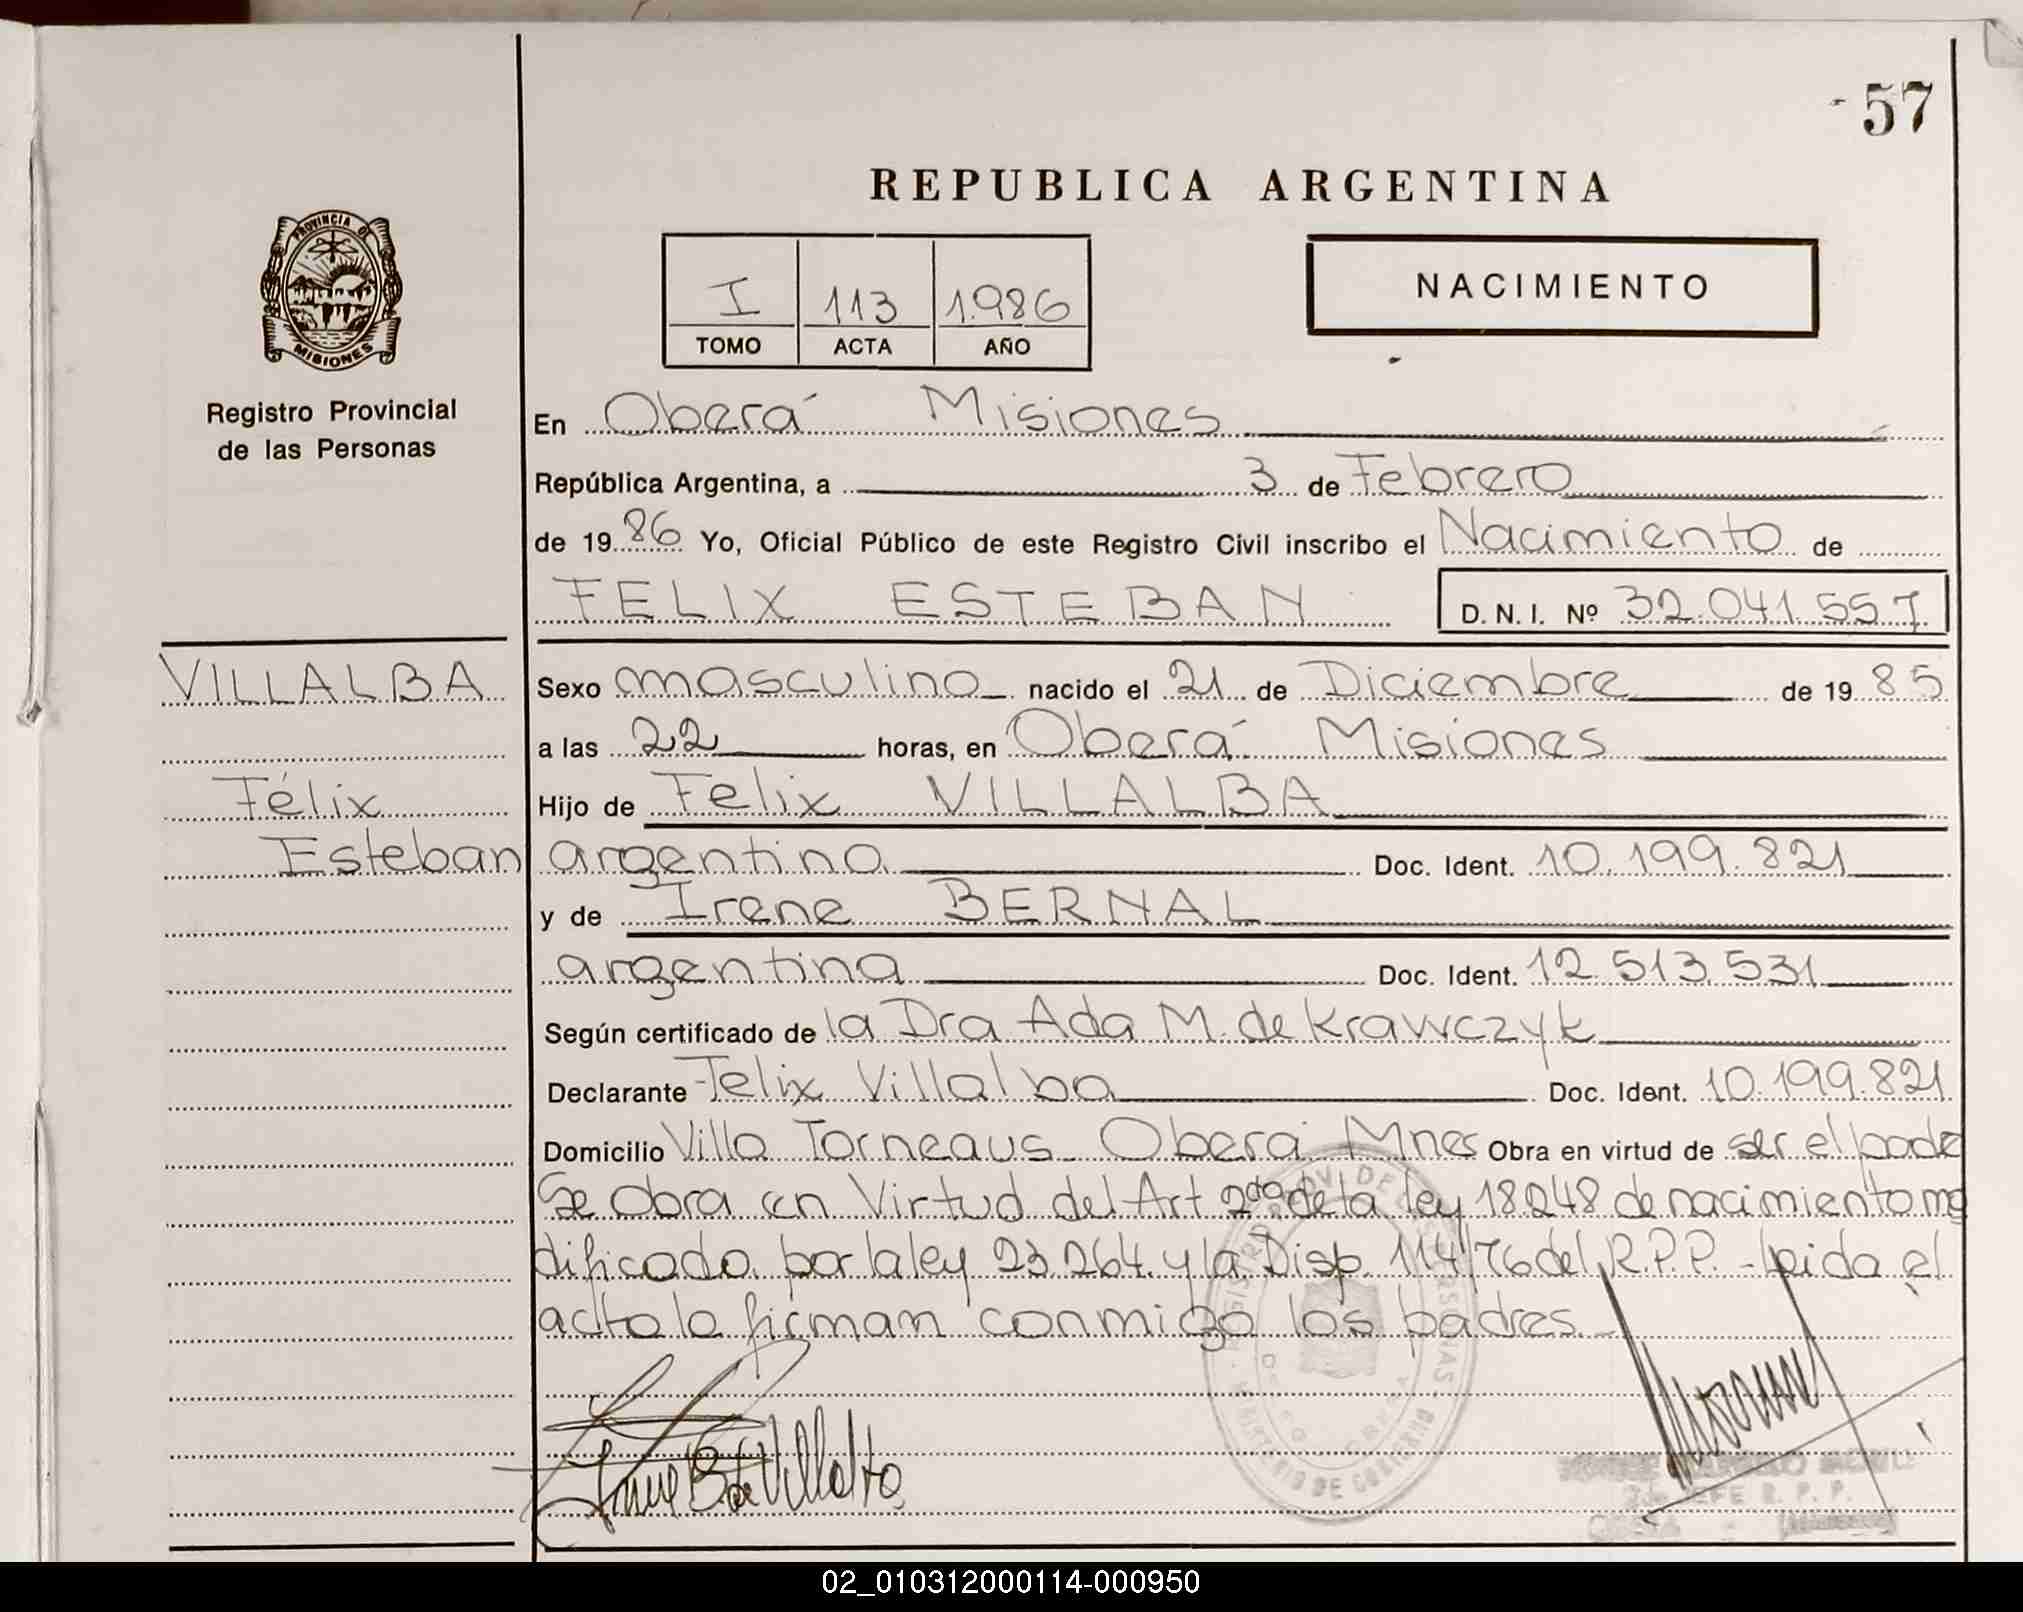 57
REPUBLICA ARGENTINA
PROVINCIA DE
MISIONES
Registro Provincial
de las Personas
I 113 1.986
TOMO ACTA AÑO
NACIMIENTO
En Oberá Misiones
República Argentina, a 3 de Febrero
de 1986 Yo, Oficial Público de este Registro Civil inscribo el Nacimiento de
FELIX ESTEBAN D. N. I. Nº 32.041.557
VILLALBA
Félix
Esteban
Sexo masculino nacido el 21 de Diciembre de 1985
a las 22 horas, en Oberá Misiones
Hijo de Felix VILLALBA
argentino Doc. Ident. 10.199.821
y de Irene BERNAL
argentina Doc. Ident. 12.513.531
Según certificado de la Dra Ada M. de Krawczyk
Declarante Felix Villalba Doc. Ident. 10.199.821
Domicilio Villa Torneaus Oberá Mnes Obra en virtud de ser el padre
Se Obra en Virtud del Art 2do de la ley 18248 de nacimiento mo
dificado por la ley 23.264 y la Disp. 114/76 del R.P.P. - Leida el
acta lo firman conmigo los padres
Irene B de Villalba
JEFE R. P. P.
02_010312000114-000950